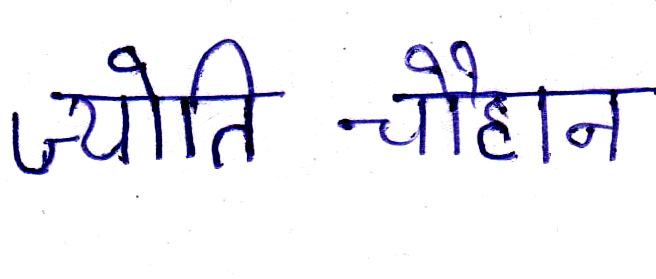 ज्योति चौहान